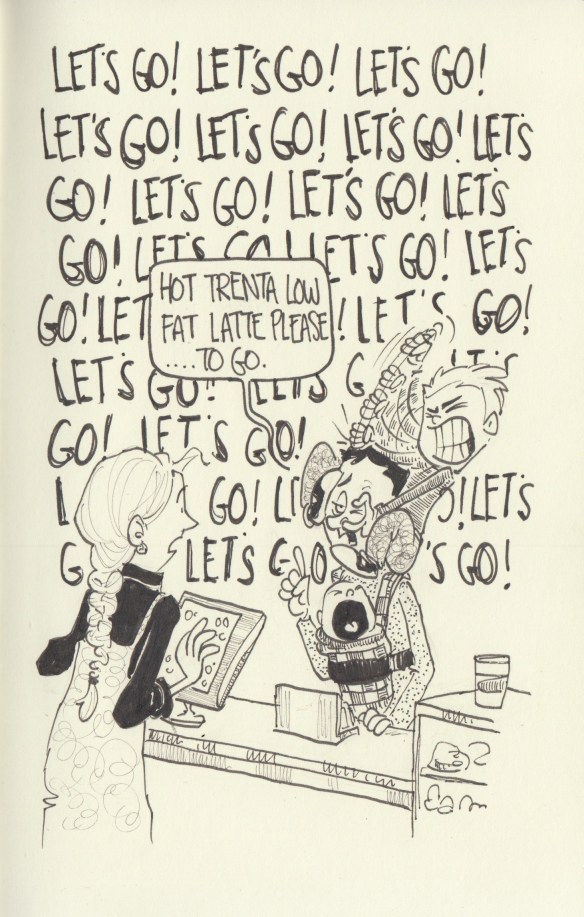 LET'S GO! LET'S GO! LET'S GO!
LET'S GO! LET'S GO! LET'S GO! LET'S
GO! LET'S GO! LET'S GO! LET'S
GO! LET'S GO! LET'S GO! LET'S
GO! LET ! LET'S GO!
LET'S GO! LET'S G
GO! LET'S GO!
L GO! L O! LET'S
G LET'S GO 'S GO!
HOT TRENTA LOW
FAT LATTE PLEASE
....TO GO.